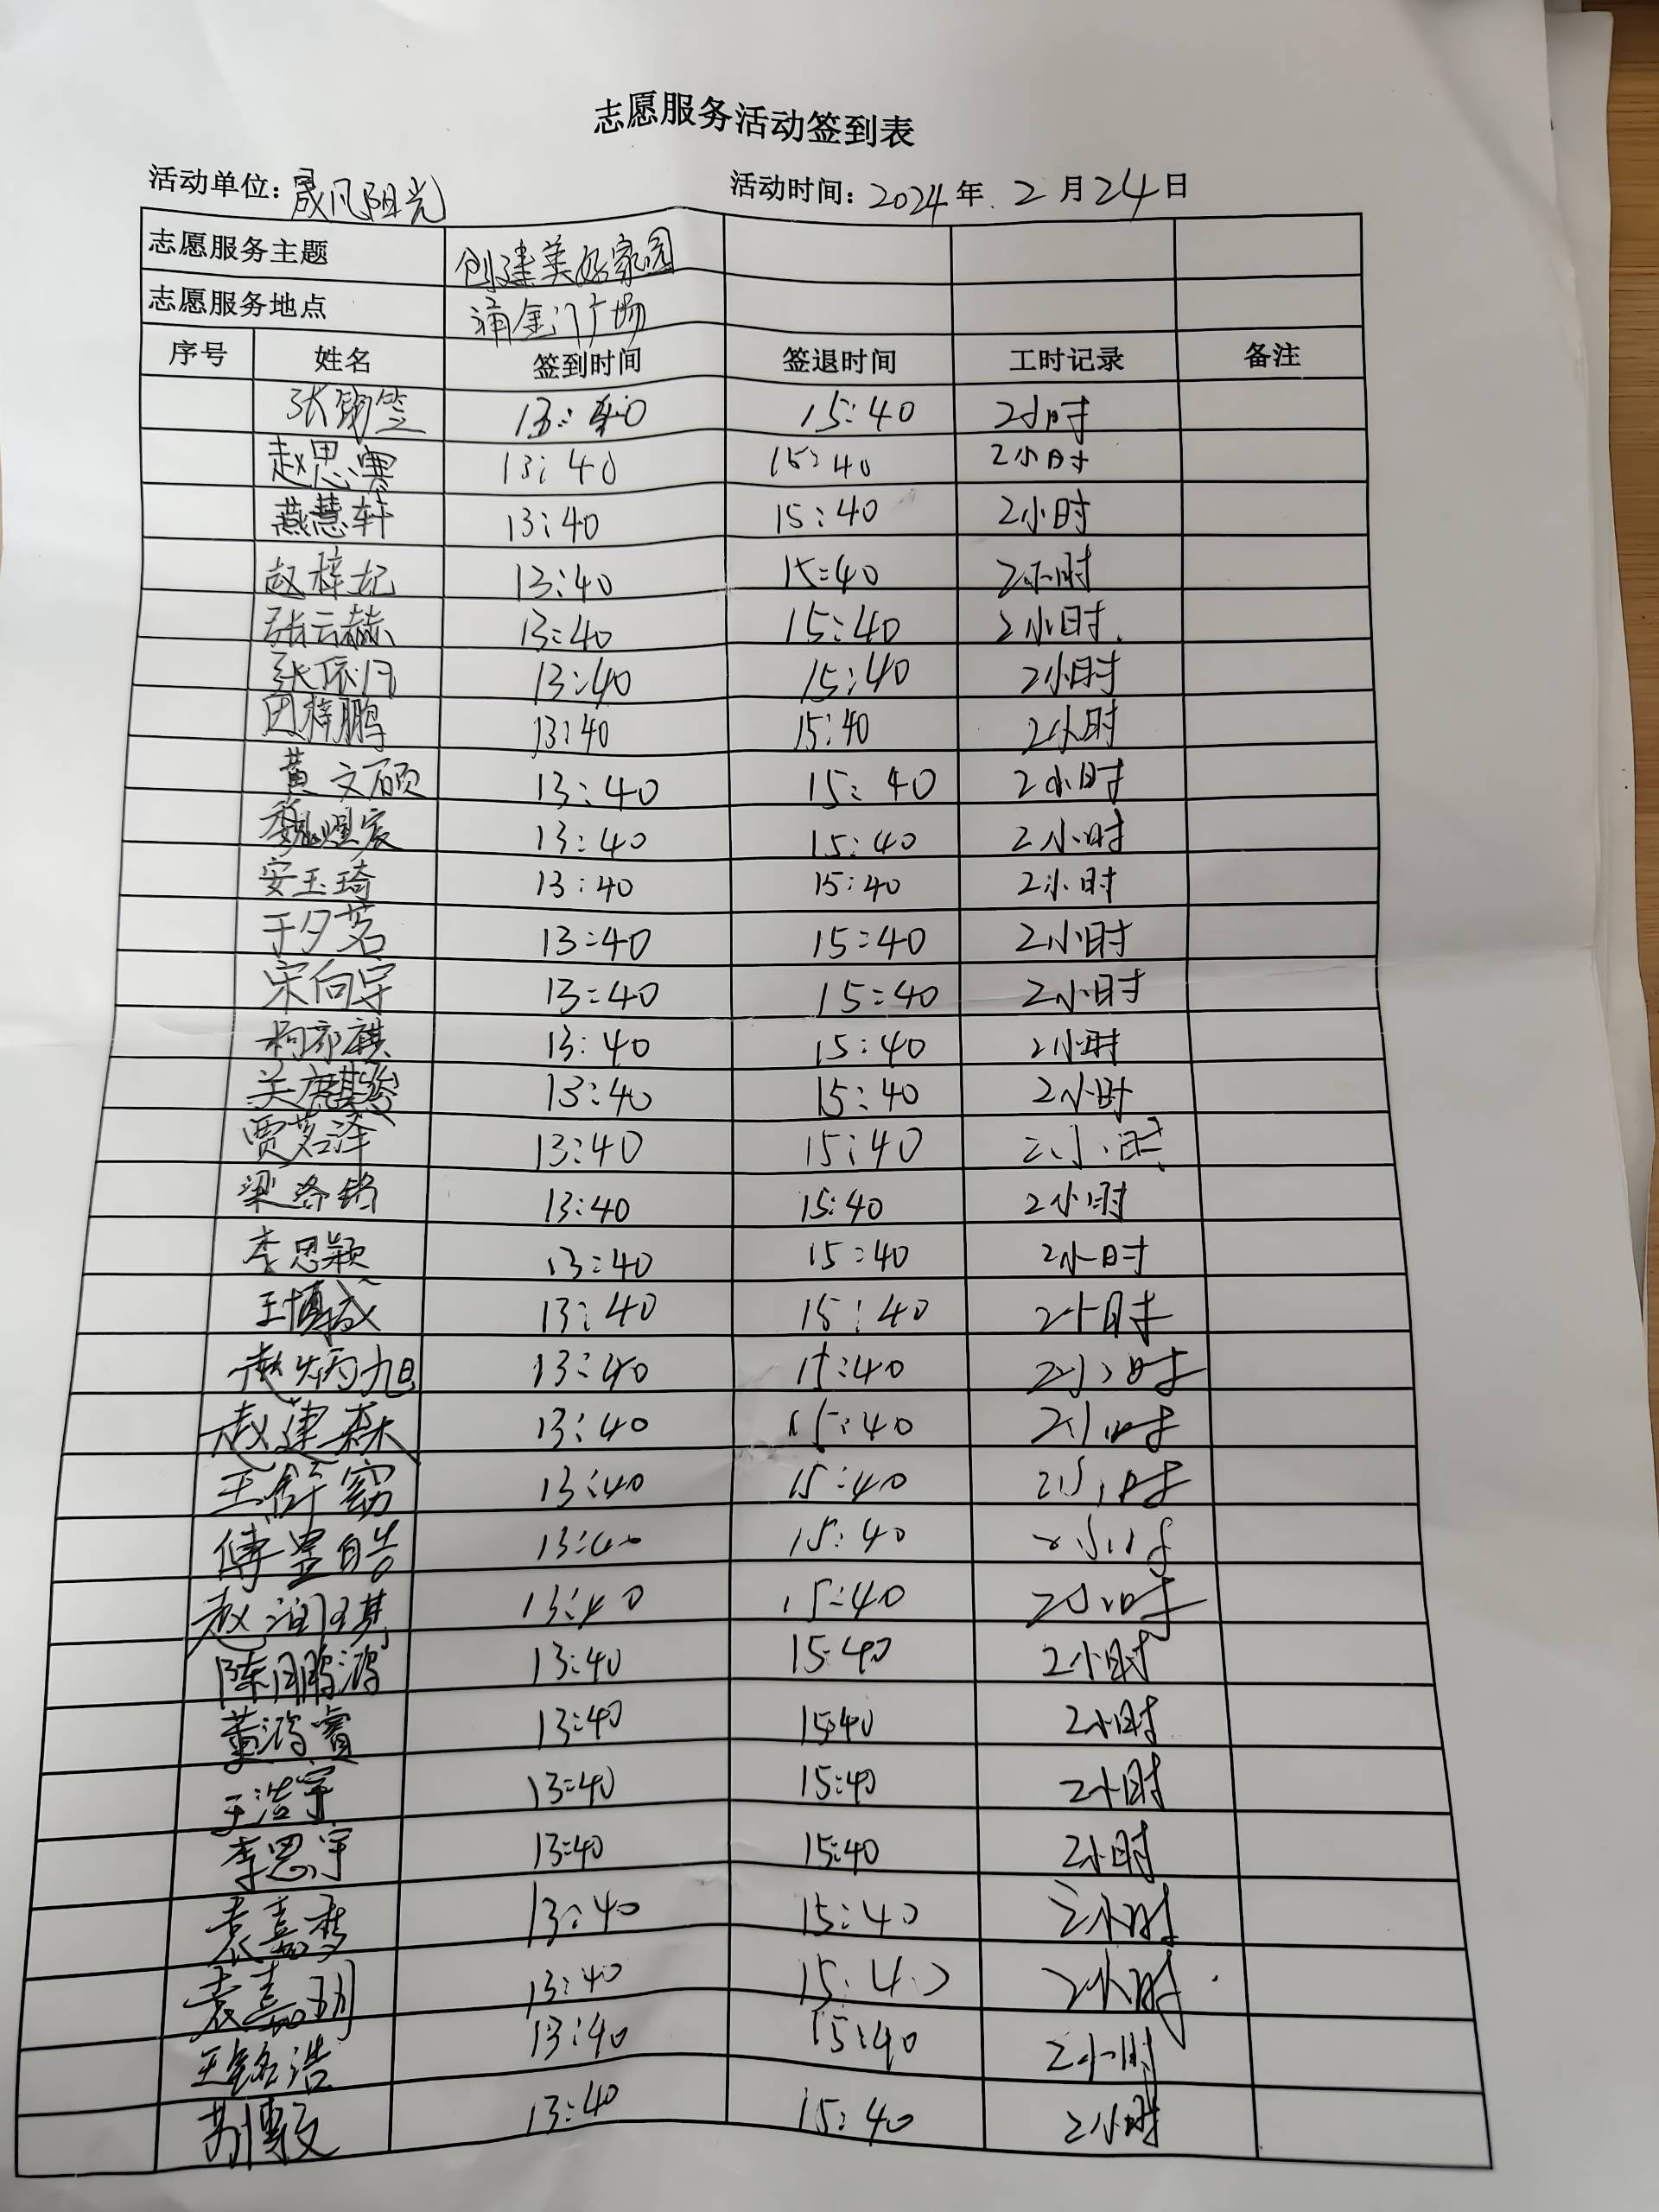 志愿服务活动签到表
活动单位：晟凡阳光 活动时间：2024年.2月24日
志愿服务主题 创建美好家园
志愿服务地点 涌金门广场
序号 姓名 签到时间 签退时间 工时记录 备注
张 13:40 15:40 2小时
赵思 13:40 15:40 2小时
燕慧轩 13:40 15:40 2小时
赵梓妃 13:40 15:40 2小时
张云赫 13:40 15:40 2小时.
张依月 13:40 15:40 2小时
田梓鹏 13:40 15:40 2小时
黄文硕 13:40 15:40 2小时
魏煜宸 13:40 15:40 2小时
安玉琦 13:40 15:40 2小时
于夕茗 13:40 15:40 2小时
宋向宇 13:40 15:40 2小时
13:40 15:40 2小时
关麒 13:40 15:40 2小时
贾茗泽 13:40 15:40 2小时
梁洛铭 13:40 15:40 2小时
李思颖 13:40 15:40 2小时
王博成 13:40 15:40 2小时
赵炳旭 13:40 15:40 2小时
赵建森 13:40 15:40 2小时
王舒窈 13:40 15:40 2小时
傅昱皓 13:40 15:40 2小时
赵润琪 13:40 15:40 2小时
陈同鹏鸿 13:40 15:40 2小时
董鸿睿 13:40 15:40 2小时
于浩宇 13:40 15:40 2小时
李思宇 13:40 15:40 2小时
袁嘉梦 13:40 15:40 2小时
袁嘉玥 13:40 15:40 2小时
王铭浩 13:40 15:40 2小时
苏博文 13:40 15:40 2小时